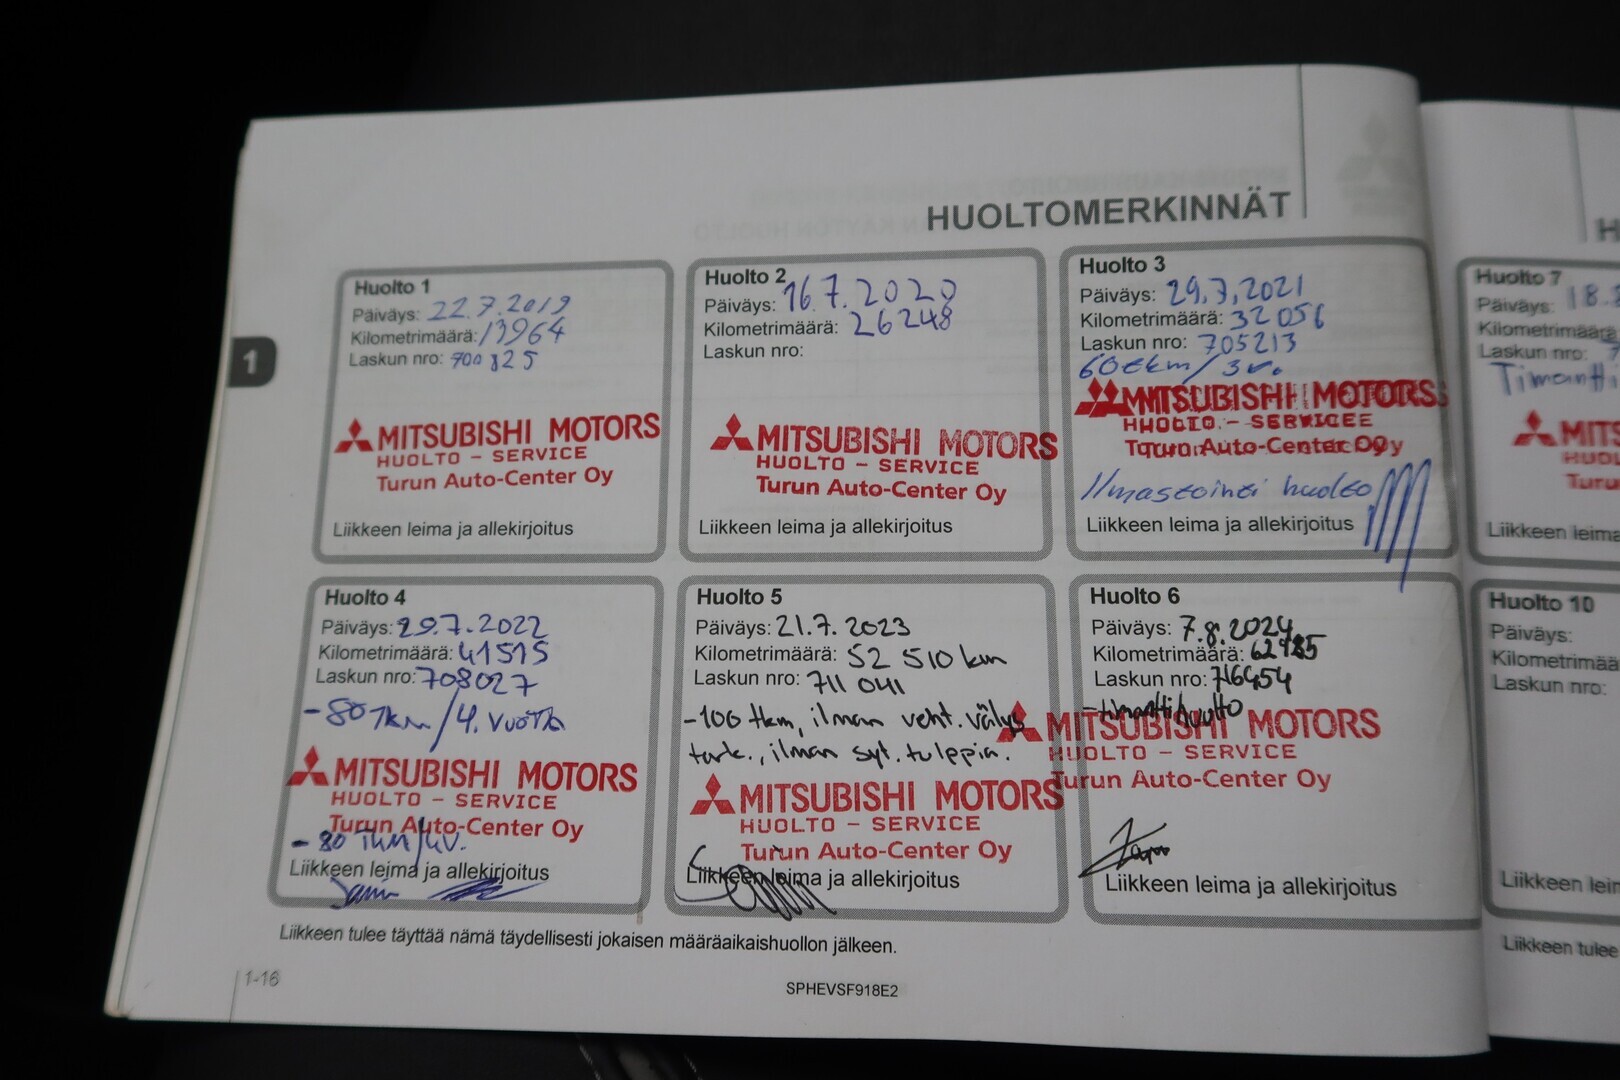 HUOLTOMERKINNÄT
1
Huolto 1
Päiväys: 22.7.2019
Kilometrimäärä: 13964
Laskun nro: 700825
MITSUBISHI MOTORS
HUOLTO - SERVICE
Turun Auto-Center Oy
Liikkeen leima ja allekirjoitus
Huolto 2
Päiväys: 16.7.2020
Kilometrimäärä: 26248
Laskun nro:
MITSUBISHI MOTORS
HUOLTO - SERVICE
Turun Auto-Center Oy
Liikkeen leima ja allekirjoitus
Huolto 3
Päiväys: 29.7.2021
Kilometrimäärä: 32056
Laskun nro: 705213
60tkm/3v.
MITSUBISHI MOTORS
HUOLTO - SERVICE
Turun Auto-Center Oy
Ilmastointi huolto
Liikkeen leima ja allekirjoitus
Huolto 4
Päiväys: 29.7.2022
Kilometrimäärä: 41515
Laskun nro: 708027
-80 Tkm/4. vuotta
MITSUBISHI MOTORS
HUOLTO - SERVICE
Turun Auto-Center Oy
- 80 Tkm/4v.
Liikkeen leima ja allekirjoitus
Huolto 5
Päiväys: 21.7.2023
Kilometrimäärä: 52 510 km
Laskun nro: 711041
-100 tkm, ilman veht. välys
tark., ilman syt. tulppia.
MITSUBISHI MOTORS
HUOLTO - SERVICE
Turun Auto-Center Oy
Liikkeen leima ja allekirjoitus
Huolto 6
Päiväys: 7.8.2024
Kilometrimäärä: 62985
Laskun nro: 716454
-timanttihuolto
MITSUBISHI MOTORS
HUOLTO - SERVICE
Turun Auto-Center Oy
Liikkeen leima ja allekirjoitus
Liikkeen tulee täyttää nämä täydellisesti jokaisen määräaikaishuollon jälkeen.
1-16
SPHEVSF918E2
H
Huolto 7
Päiväys: 18.
Kilometrimäärä
Laskun nro:
Timantti
MITS
HUOL
Turu
Liikkeen leima
Huolto 10
Päiväys:
Kilometrimää
Laskun nro:
Liikkeen lei
Liikkeen tulee